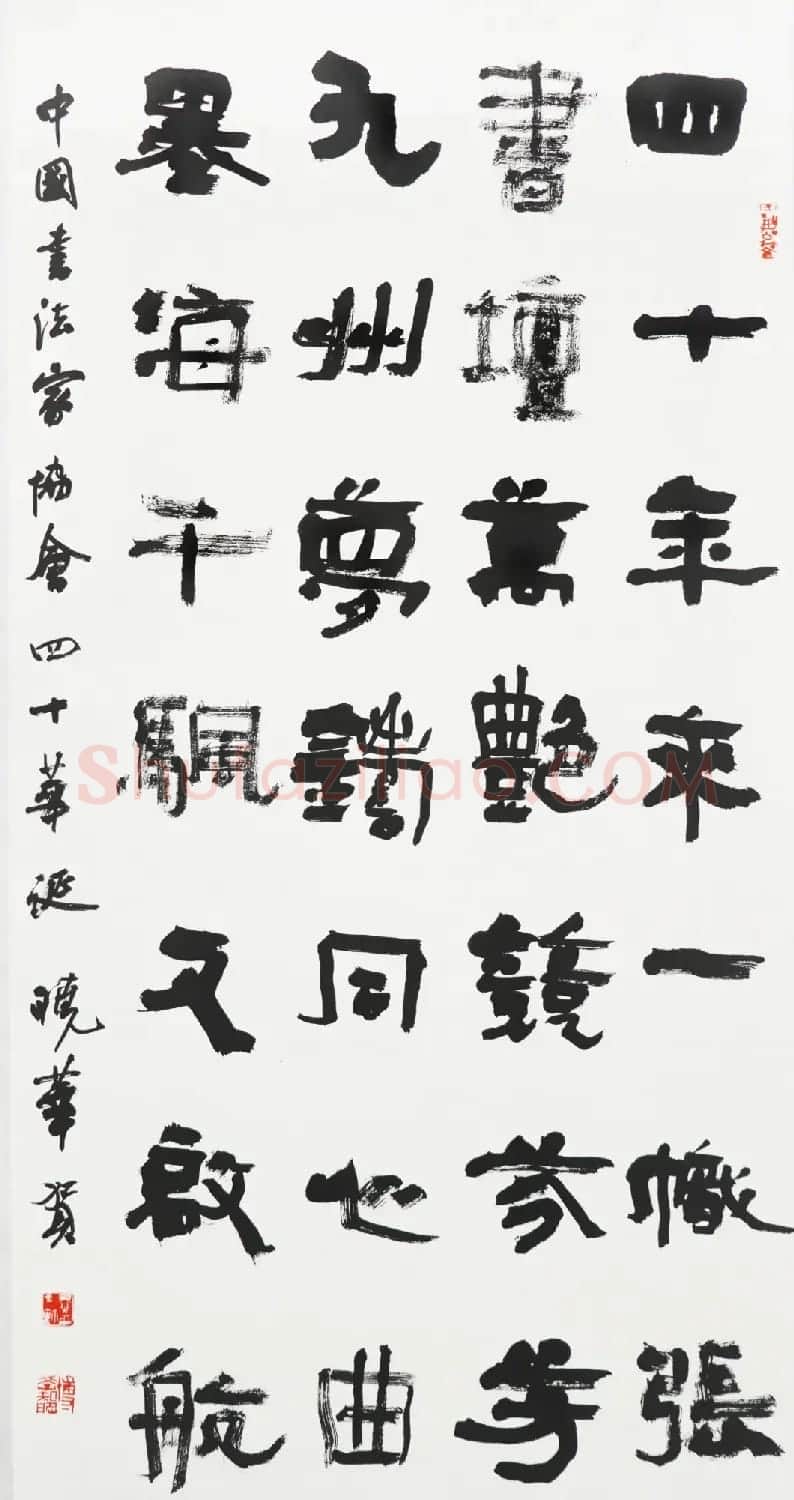 四十年來一幟張
書壇萬艷競芬芳
九州夢鑄同心曲
墨海千颿又啟航
中國書法家協會四十華誕 曉華賀
Shufaziliao.COM